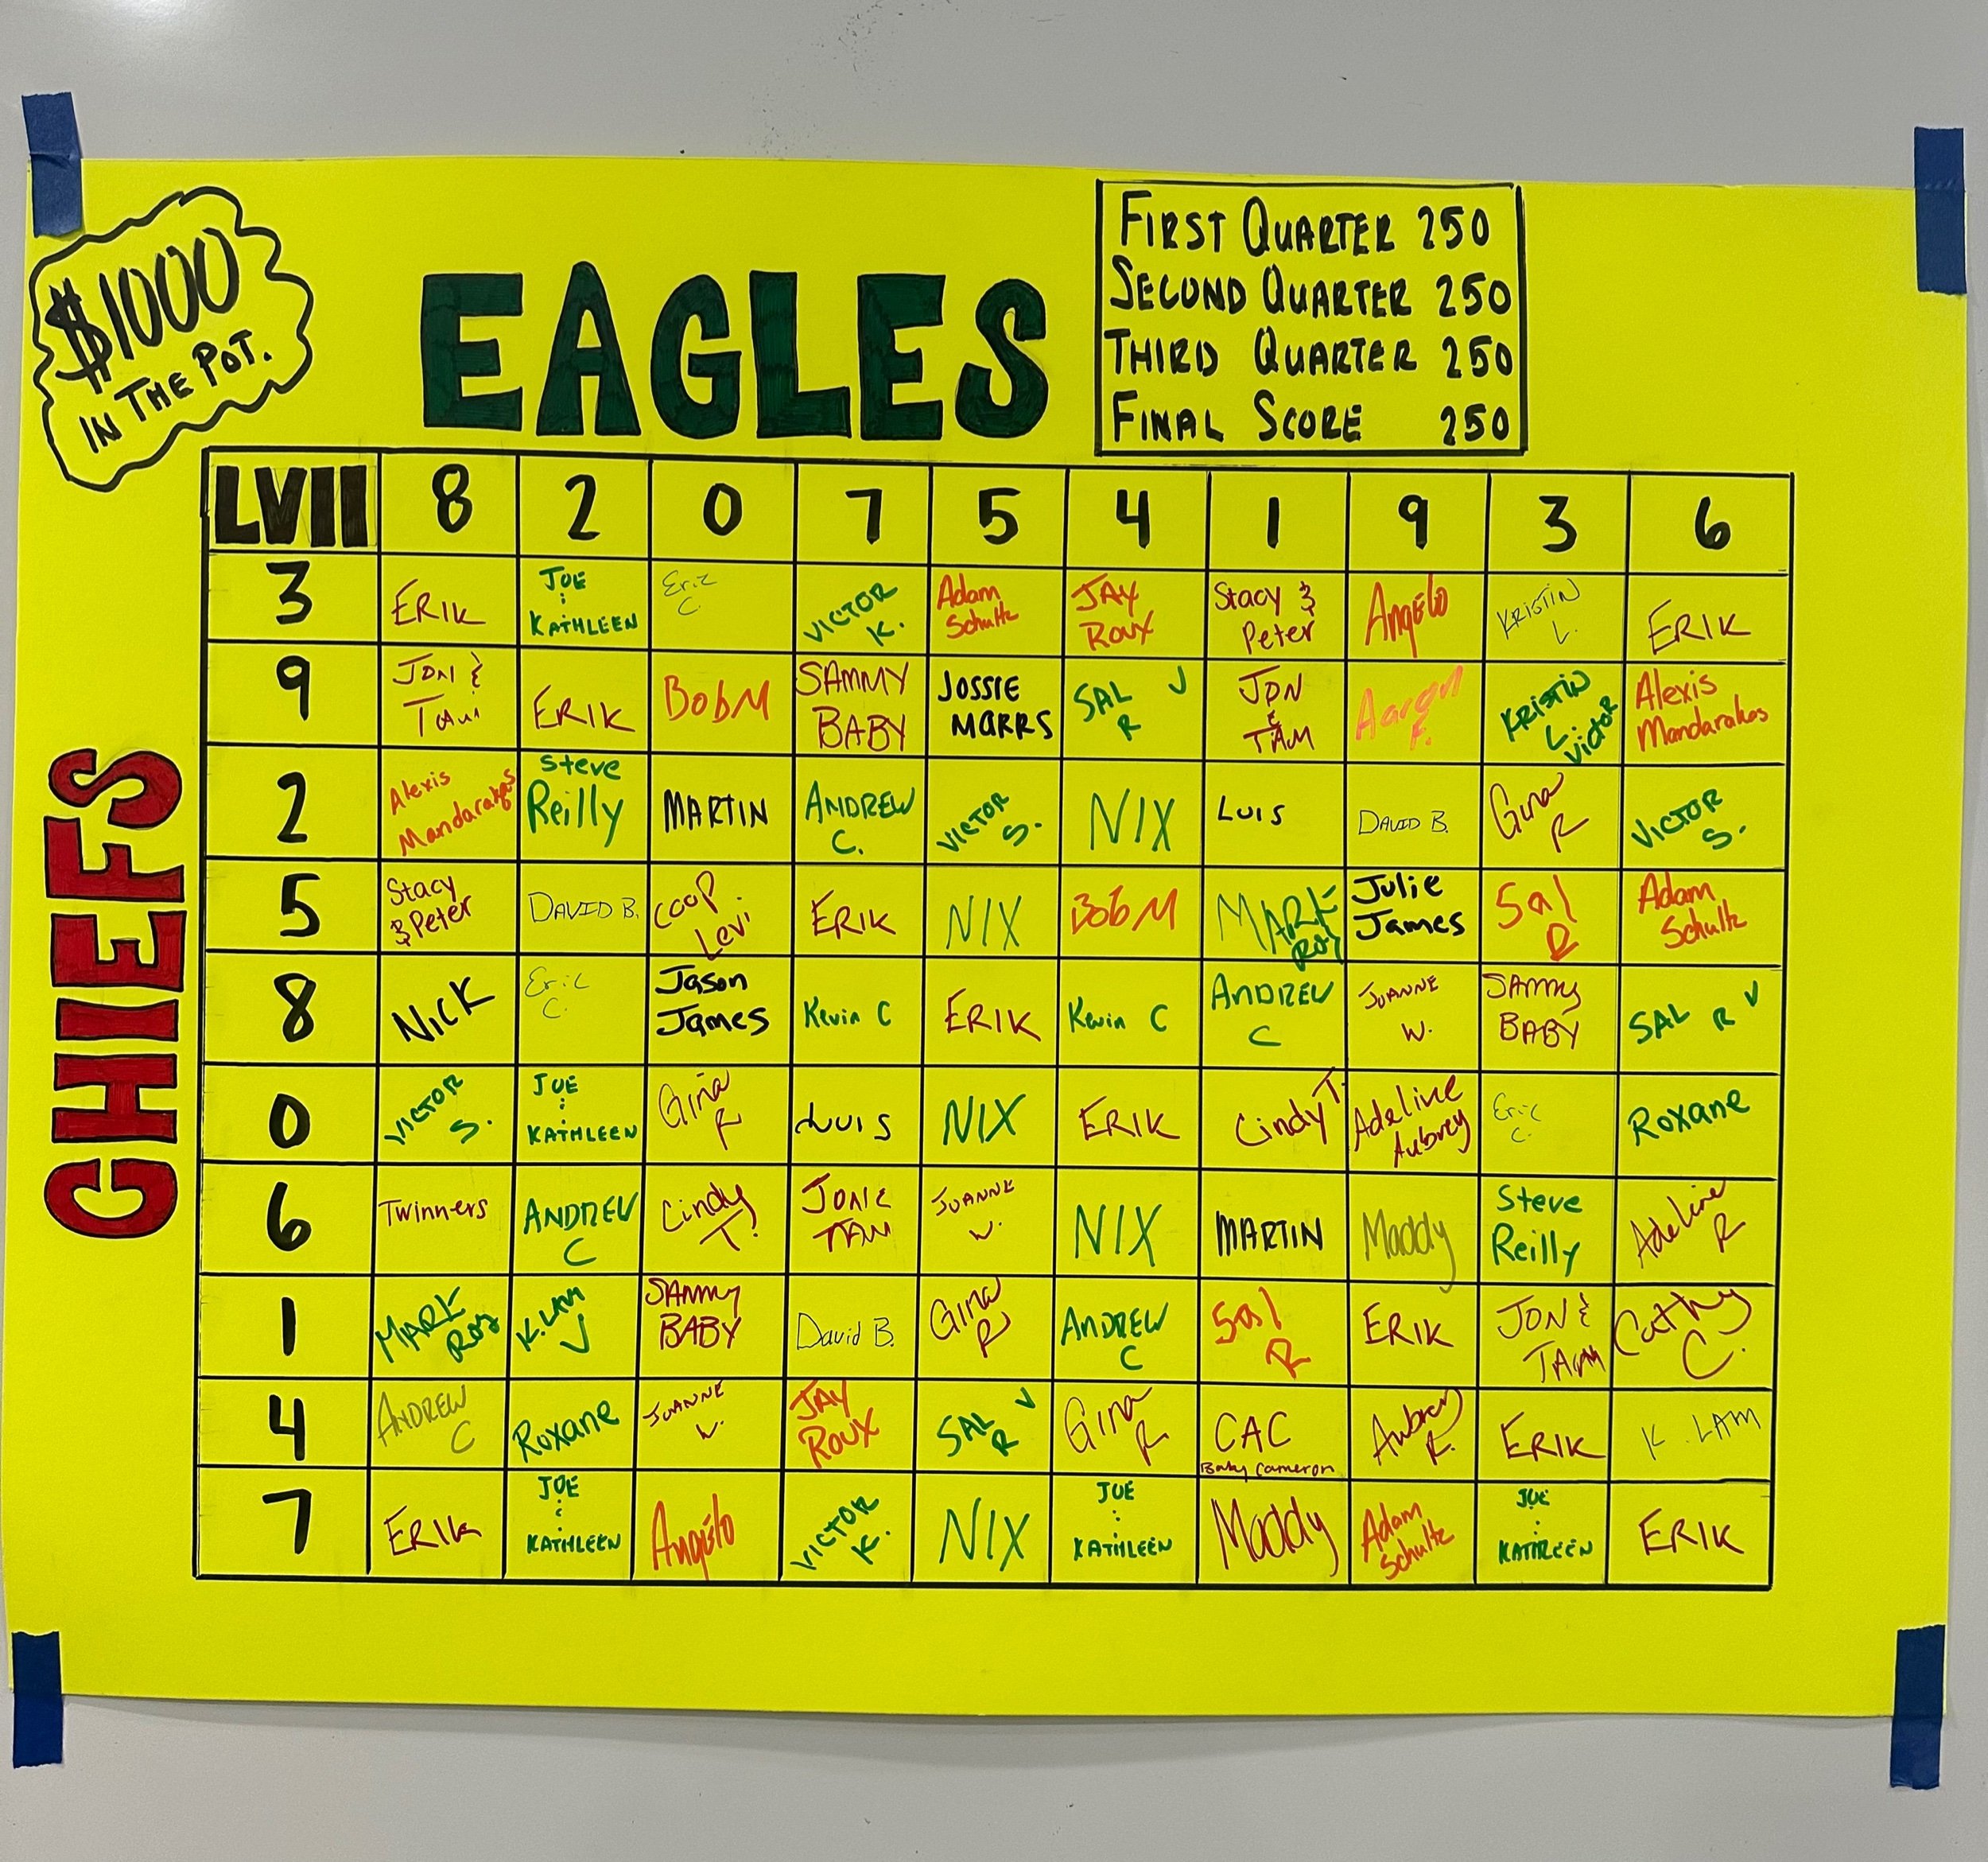 $1000
IN THE POT.
EAGLES
FIRST QUARTER 250
SECOND QUARTER 250
THIRD QUARTER 250
FINAL SCORE 250
CHIEFS
LVII 8 2 0 7 5 4 1 9 3 6
3 ERIK JOE & KATHLEEN Eric C VICTOR K. Adam Schultz JAY ROUX Stacy & Peter Angelo KRISTIN L. ERIK
9 JON & TAM ERIK BobM SAMMY BABY JOSSIE MARRS SAL R V JON & TAM Aaron F. KRISTIN L VICTOR Alexis Mandarakos
2 Alexis Mandarakos Steve Reilly MARTIN ANDREW C. VICTOR S. NIX LUIS DAVID B. Gina R VICTOR S.
5 Stacy & Peter DAVID B. Coop Levi ERIK NIX BobM MARK ROY Julie James Sal R Adam Schultz
8 NICK Eric C Jason James Kevin C ERIK Kevin C ANDREW C JOANNE W. SAMMY BABY SAL R V
0 VICTOR S. JOE & KATHLEEN Gina R LUIS NIX ERIK Cindy T. Adeline Aubrey Eric C. Roxane
6 Twinners ANDREW C Cindy T. JON & TAM JOANNE W. NIX MARTIN Maddy Steve Reilly Adeline R
1 MARK ROY K. LAM V SAMMY BABY David B. Gina R ANDREW C Sal R ERIK JON & TAM Cathy C.
4 ANDREW C Roxane JOANNE W. JAY ROUX SAL R V Gina R CAC Baby Cameron Aubrey R. ERIK K. LAM
7 ERIK JOE & KATHLEEN Angelo VICTOR K. NIX JOE & KATHLEEN Maddy Adam Schultz JOE & KATHLEEN ERIK